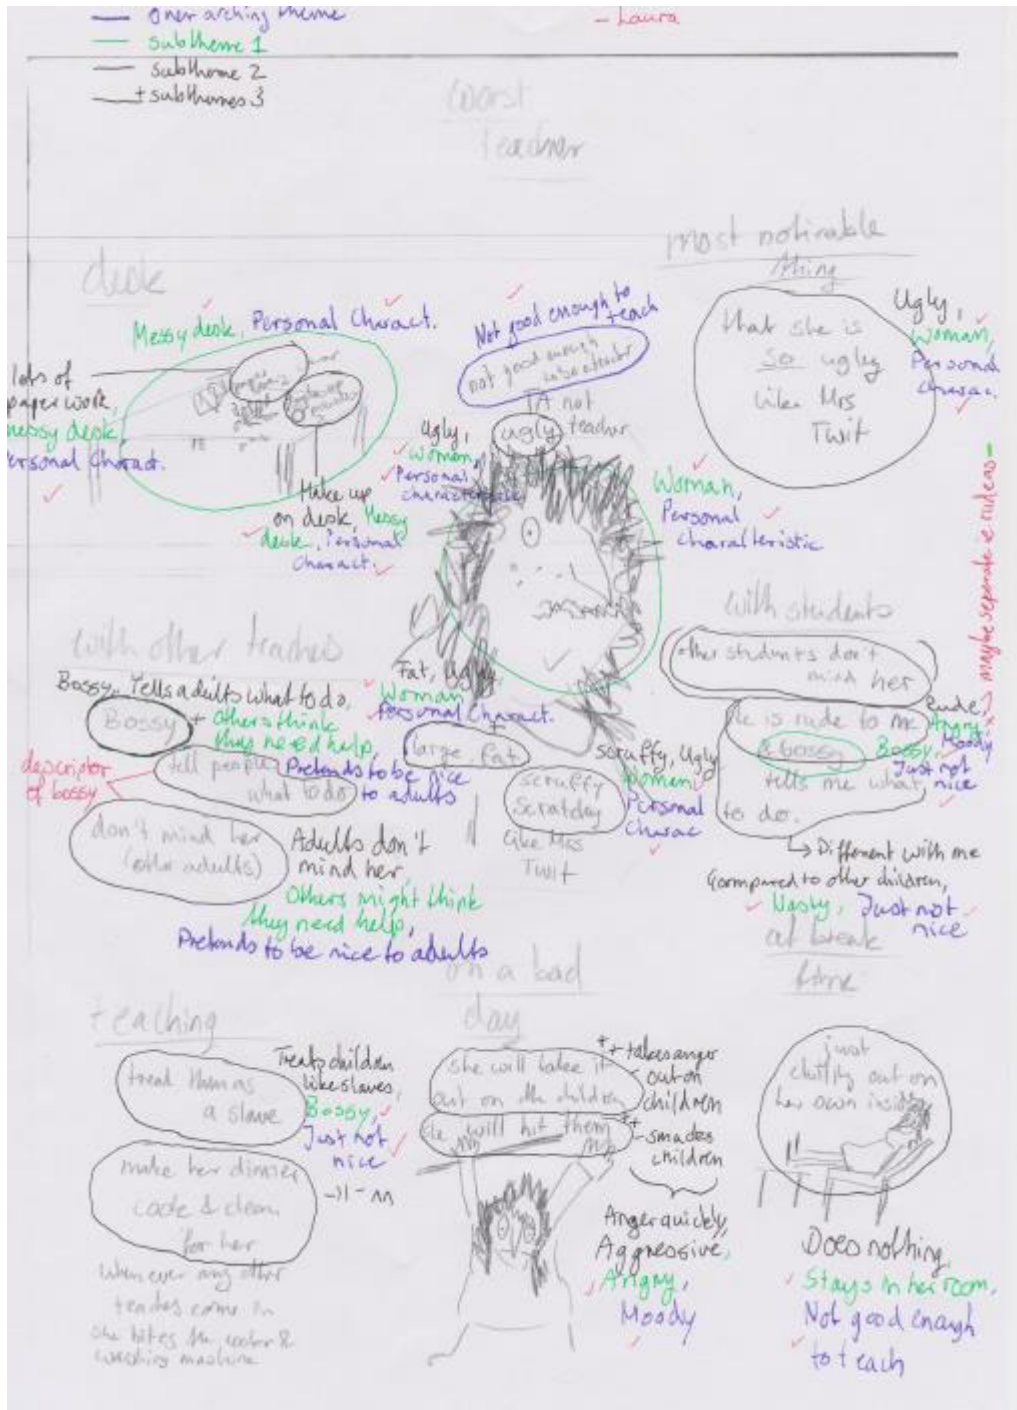 Overarching theme
Subtheme 1
Subtheme 2
+ subthemes 3
- Laura
worst
Teacher
desk
Messy desk, Personal Charact.
lots of
paper work,
messy desk,
Personal Charact.
Make up
on desk, Messy
desk, Personal
Charact.
Not good enough to
teach
not good enough
TA not
teacher
ugly
Ugly,
Women,
Personal
characteristic
Woman,
Personal
characteristic
most noticable
thing
that she is
so ugly
like Mrs
Twit
Ugly,
Woman,
Personal
Charac.
maybe separate ie rude as
with other teaches
Bossy, Tells adults what to do,
Bossy
+ Others think
they need help,
Pretends to be nice
to adults
tell people
what to do
descriptor
of bossy
don't mind her
(other adults)
Adults don't
mind her,
Others might think
they need help,
Pretends to be nice to adults
Fat, Ugly,
Woman
Personal Charact.
large, fat
scruffy
like Mrs
Twit
scruffy, Ugly
Women,
Personal
Charac
with students
other students don't
mind her
is rude to me
& bossy
tells me what
to do.
Rude,
Angry
Moody
Bossy,
Just not
nice
Different with me
Compared to other children,
Nasty, Just not
nice
teaching
treat them as
a slave
Treats children
like slaves,
Bossy,
Just not
nice
make her dinner
cook & clean
for her
-)) - ))
when ever any other
teaches come in
she hides the cooker &
washing machine
on a bad
day
she will take it
out on the children
will hit them
++ takes anger
out on
children
++ - smacks
children
Anger quickly,
Aggressive,
Angry,
Moody
at break
time
just
chilling out on
her own inside
Does nothing,
Stays in her room,
Not good enough
to teach